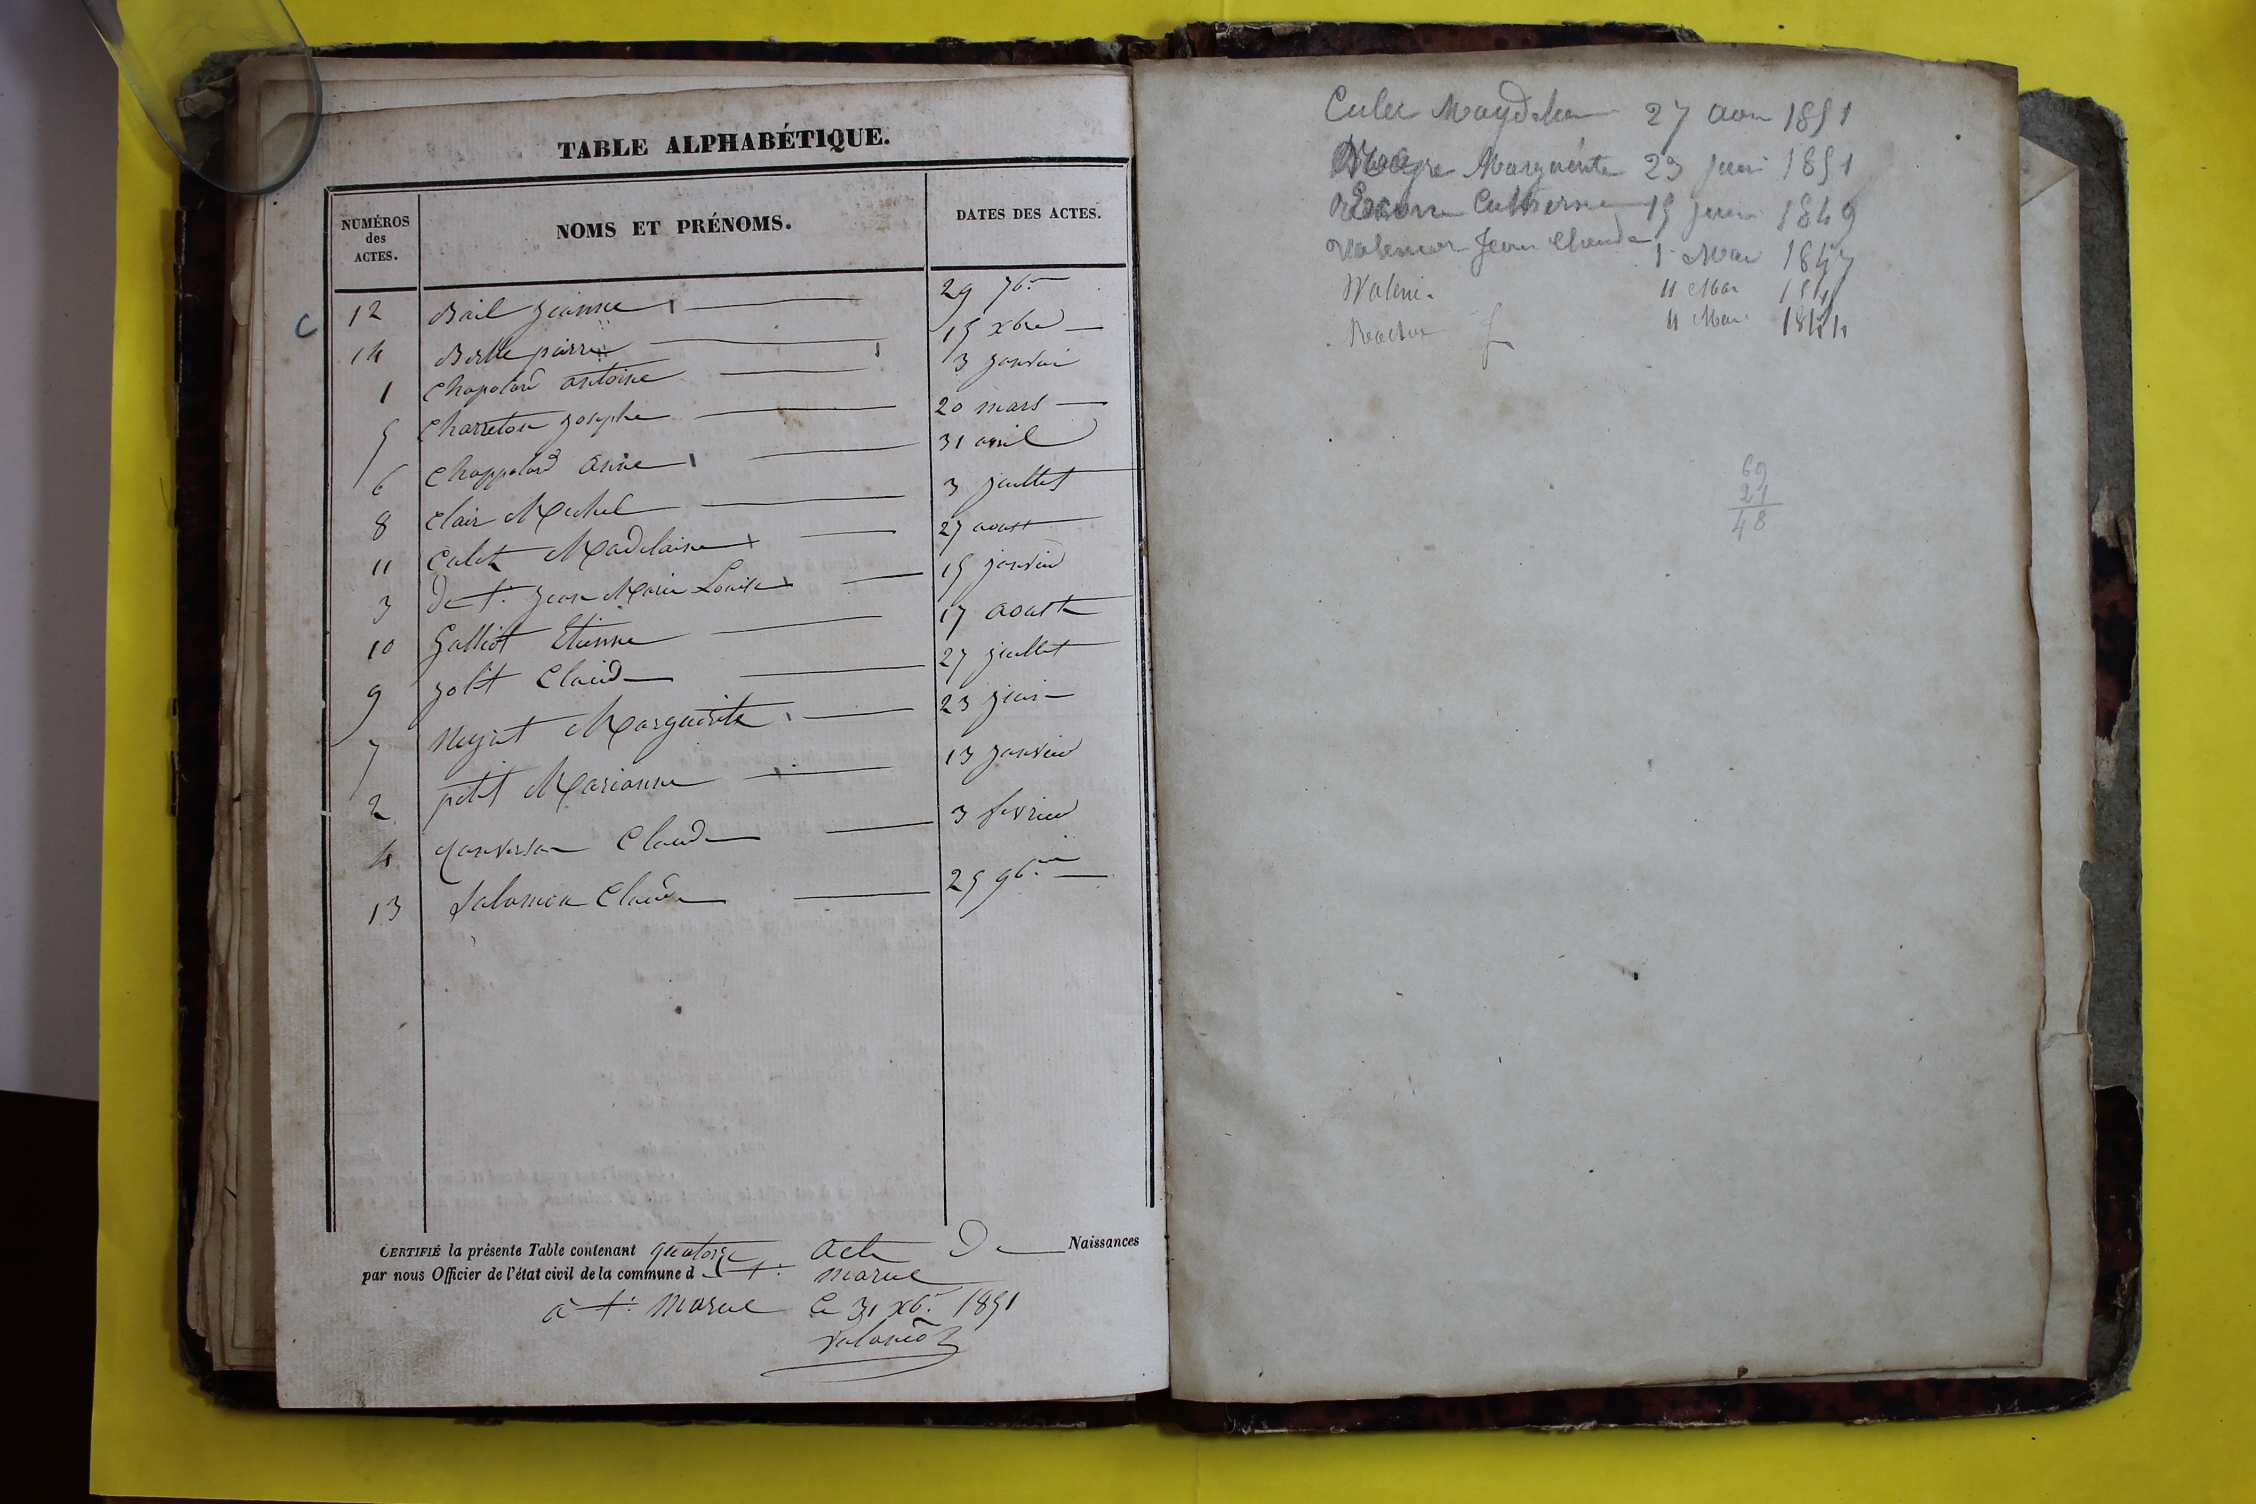 TABLE ALPHABÉTIQUE.
NUMÉROS des ACTES. NOMS ET PRÉNOMS. DATES DES ACTES.
12 Bail Jeanne 29 7bre
14 Berthe pierre 15 xbre
1 Chapolard antoine 3 janvier
5 Charreton josephe 20 mars
6 Chappolard anne 31 avril
8 Clair Michel 3 juillet
11 Culet Madelaine 27 aoust
3 de st. jean Marie Louise 15 janvier
10 Galliot Etienne 17 aoust
9 jolit Claude 27 juillet
7 Marguerite 23 juin
2 petit Marianne 13 janvier
4 Claude 3 fevrier
13 Salomon Claude 25 9bre
CERTIFIÉ la présente Table contenant quatorze acte De Naissances
par nous Officier de l'état civil de la commune d St. marcel
à st. Marcel le 31 xbr. 1851
Culet Magdelaine 27 aou 1851
Marguerite 23 juin 1851
Catherine 15 juin 1849
Jean Claude 1 Mai 1847
11 Mai
11 Mai 1844
69
21
48